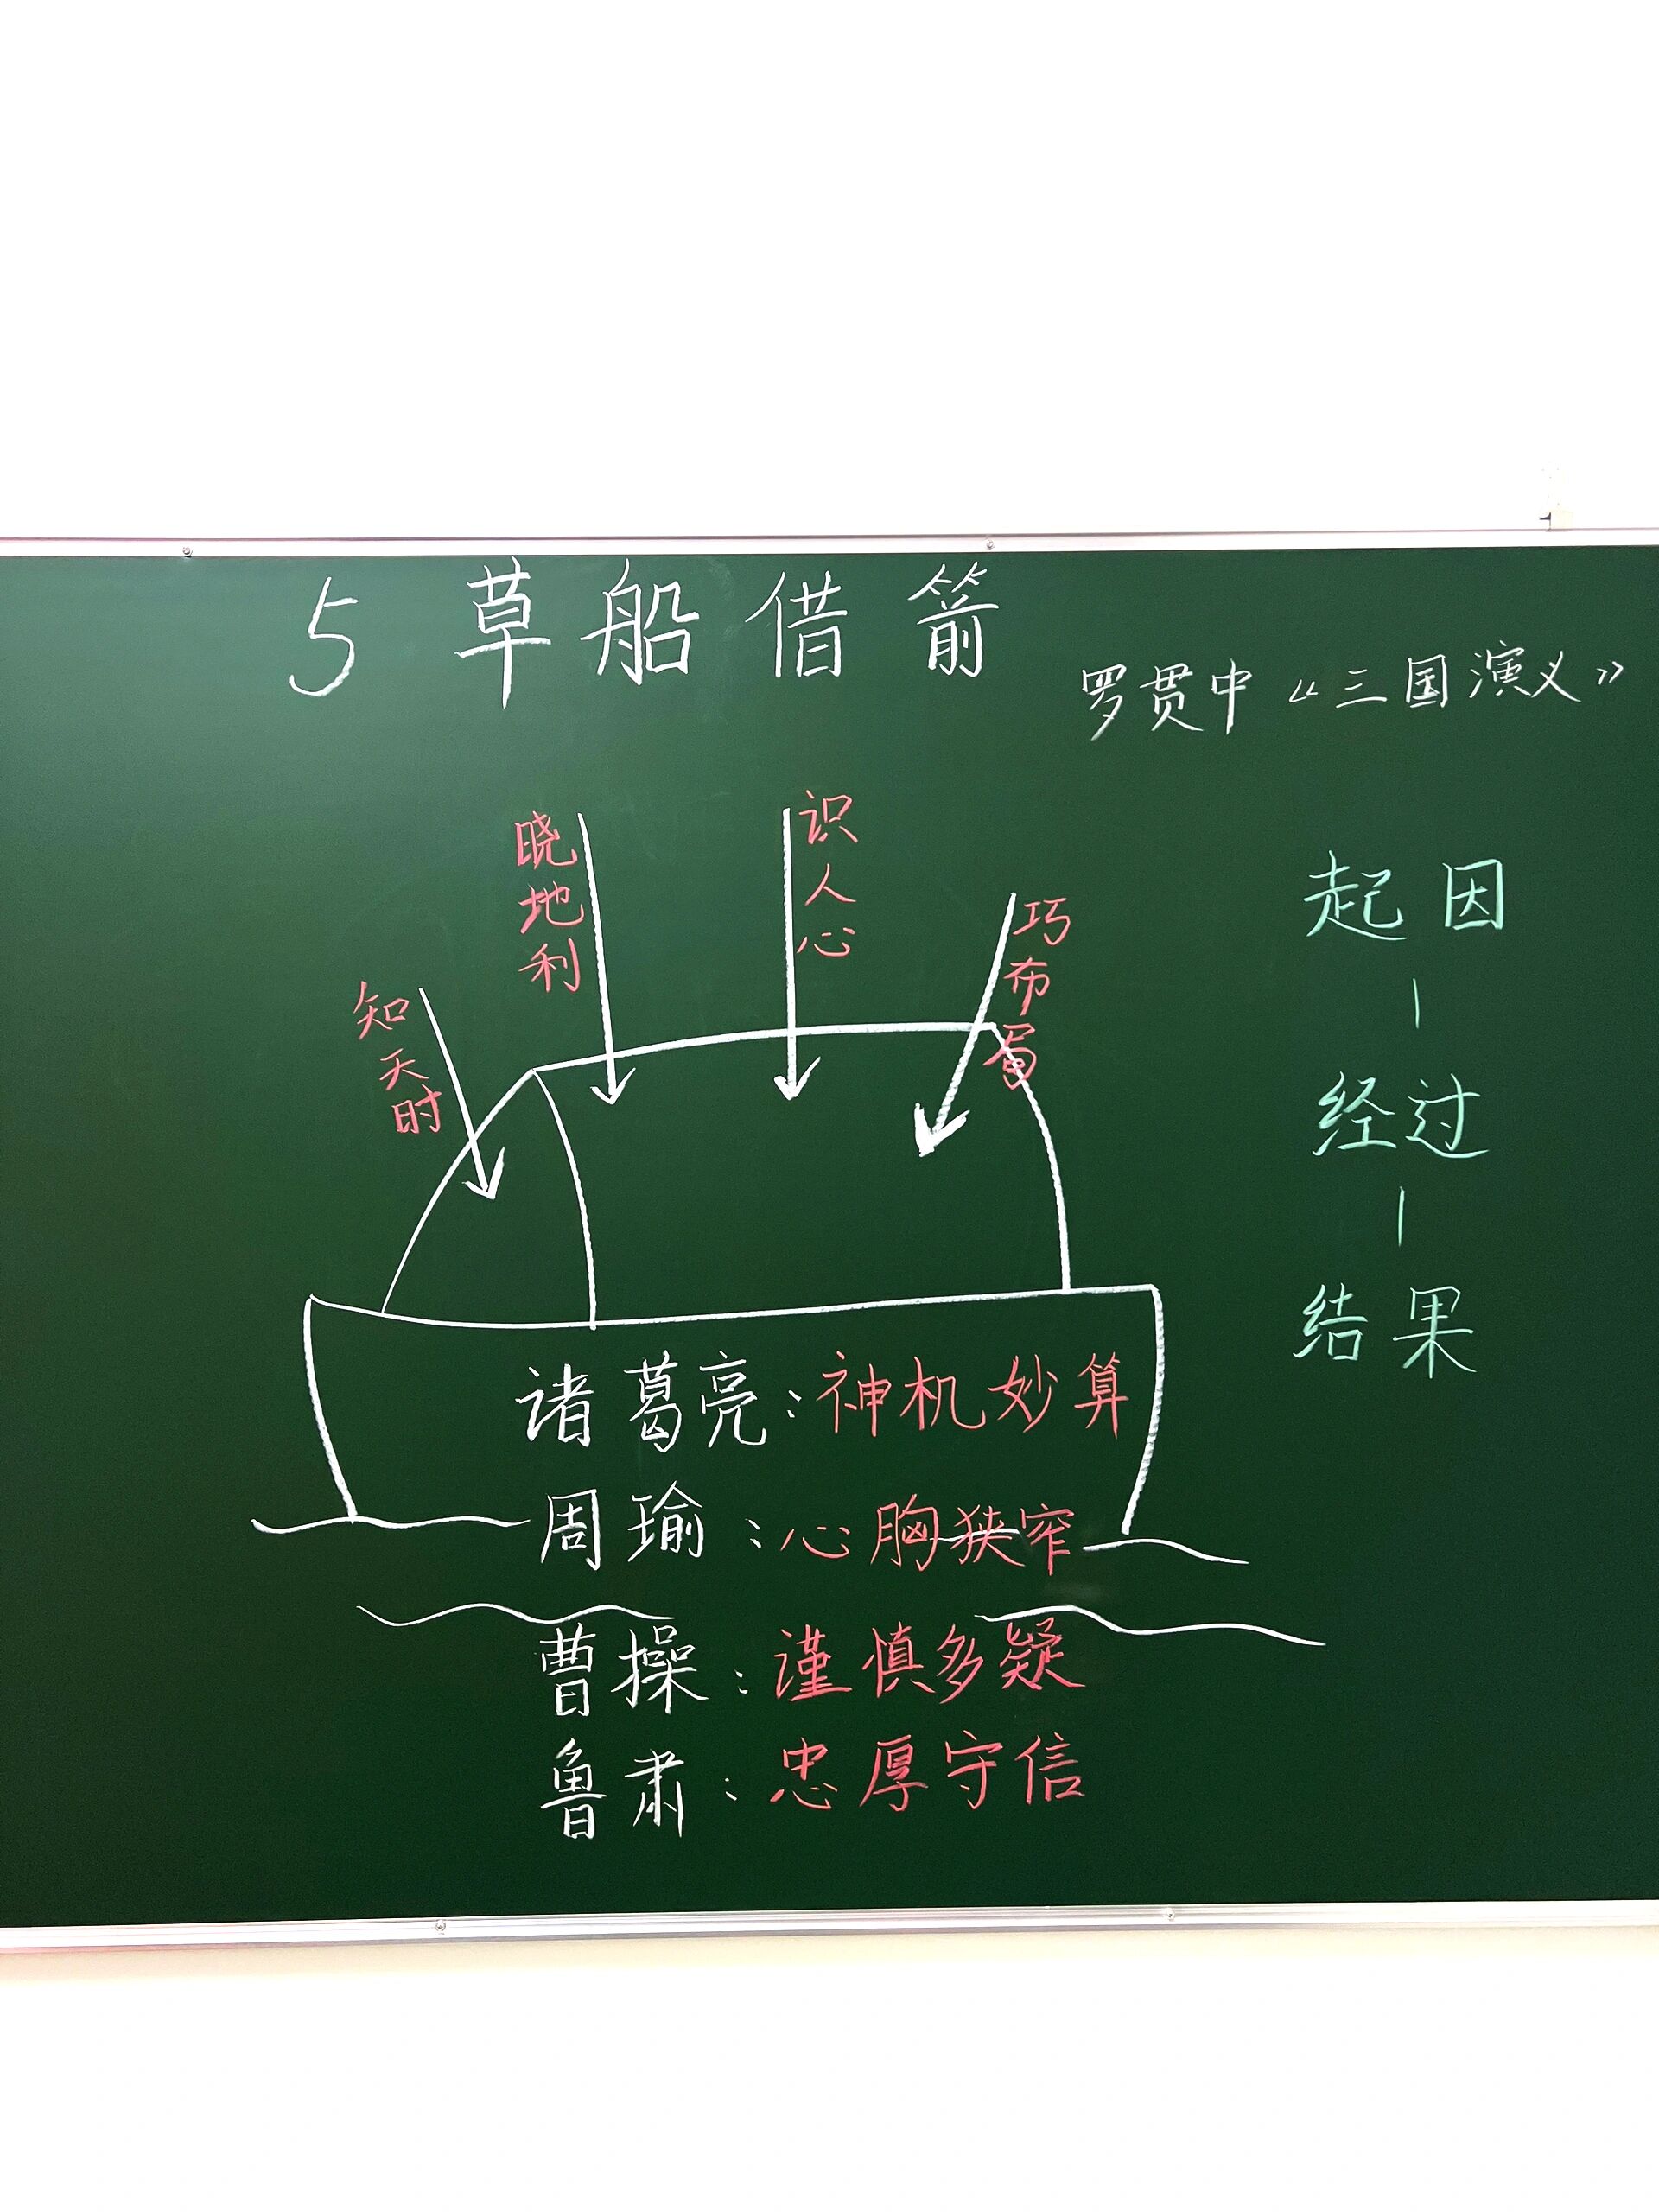 5 草船借箭
罗贯中《三国演义》
知天时
晓地利
识人心
巧布局
起因
经过
结果
诸葛亮:神机妙算
周瑜:心胸狭窄
曹操:谨慎多疑
鲁肃:忠厚守信